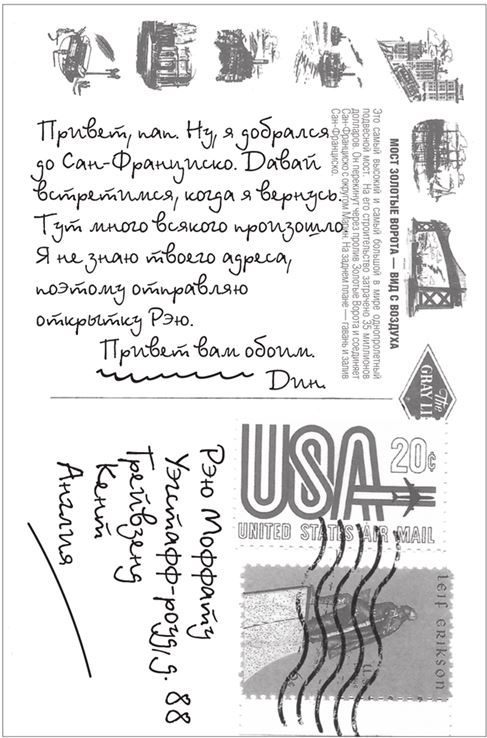 Привет, пап. Ну, я добрался
до Сан-Франциско. Давай
встретимся, когда я вернусь.
Тут много всякого произошло.
Я не знаю твоего адреса,
поэтому отправляю
открытку Рэю.
Привет вам обоим.
Дин.
МОСТ ЗОЛОТЫЕ ВОРОТА — ВИД С ВОЗДУХА
Это самый высокий и самый большой в мире однопролетный
подвесной мост. На его строительство затрачено 35 миллионов
долларов. Он перекинут через пролив Золотые Ворота и соединяет
Сан-Франциско с округом Марин. На заднем плане — гавань и залив
Сан-Франциско.
The
GRAY LI
Рэю Моффату
Уэгстафф-роуд, д. 88
Грейвзенд
Кент
Англия
USA 20c
UNITED STATES AIR MAIL
LEIF ERIKSON